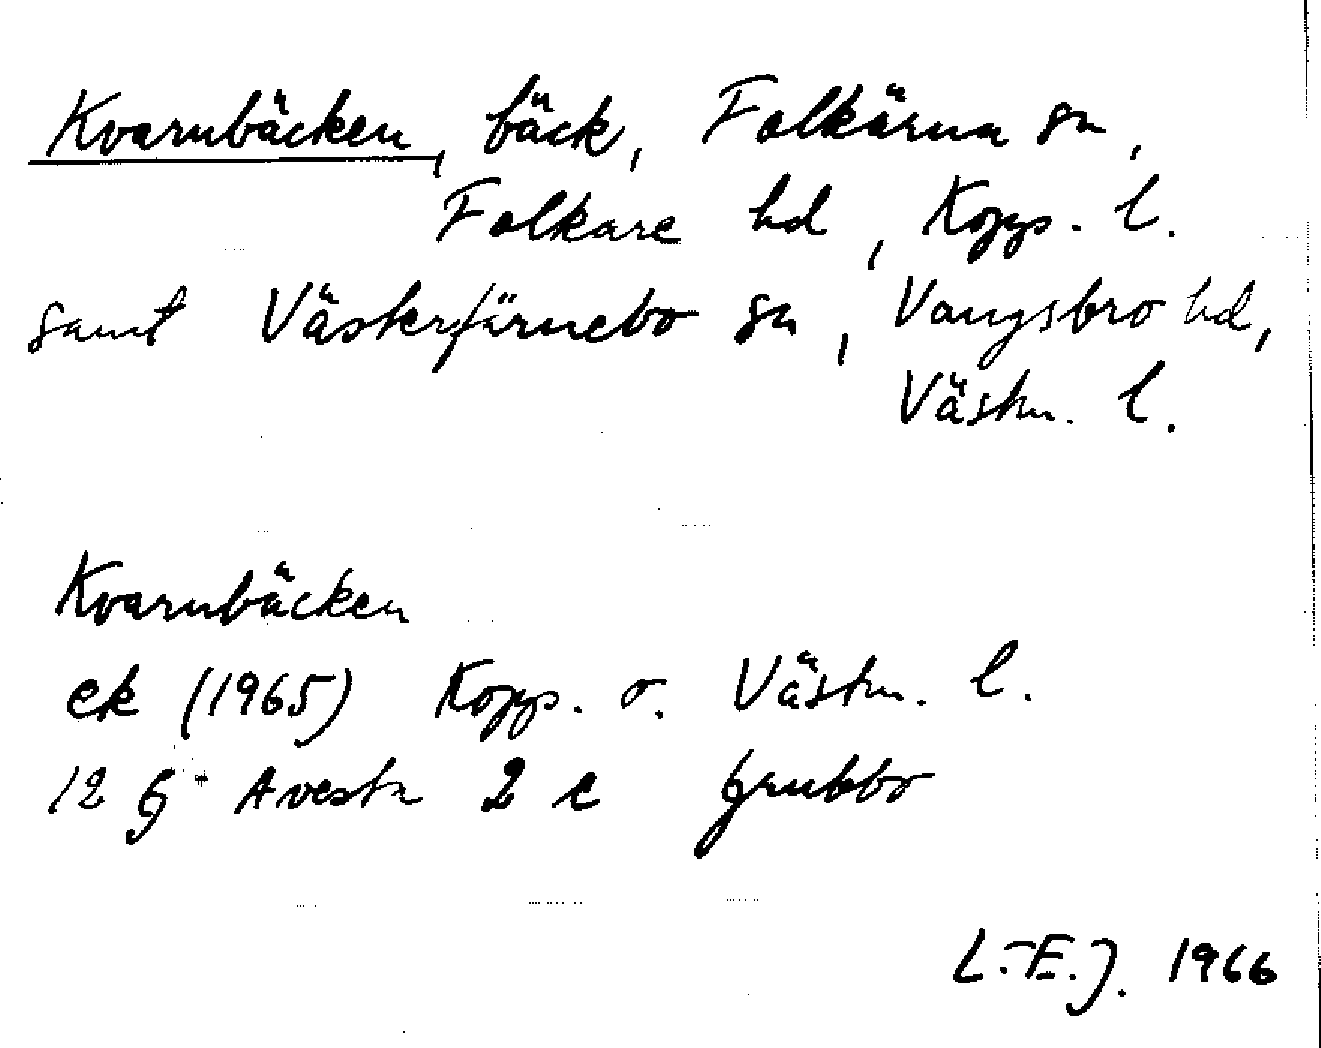 Kvarnbäcken, bäck, Folkärna sn,
Folkare hd, Kopp. l.
samt Västerfärnebo sn, Vangsbro hd,
Västm. l.
Kvarnbäcken
ek (1965) Kopp. o. Västm. l.
12 G Avesta 2 c Grubbo
L.-E.J. 1966